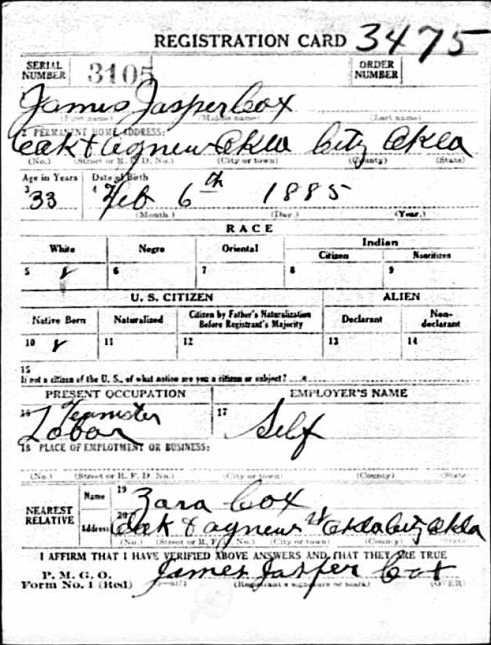 REGISTRATION CARD 3475
SERIAL NUMBER 3105 ORDER NUMBER
James Jasper Cox
(First name) (Middle name) (Last name)
2 PERMANENT HOME ADDRESS:
Oak & Agnew Okla City Okla
(No.) (Street or R. F. D. No.) (City or town) (County) (State)
Age in Years Date of Birth
3 33 4 Feb 6th 1885
(Month.) (Day.) (Year.)
RACE
White Negro Oriental Indian
Citizen Noncitizen
5 6 7 8 9
U. S. CITIZEN ALIEN
Native Born Naturalized Citizen by Father's Naturalization Before Registrant's Majority Declarant Non-declarant
10 11 12 13 14
15
If not a citizen of the U. S., of what nation are you a citizen or subject?
PRESENT OCCUPATION EMPLOYER'S NAME
16 Teamster 17
Labor Self
18 PLACE OF EMPLOYMENT OR BUSINESS:
(No.) (Street or R. F. D. No.) (City or town) (County) (State)
NEAREST RELATIVE Name 19 Zara Cox
Address 20 Oak & Agnew St Okla City Okla
(No.) (Street or R. F. D. No.) (City or town) (County) (State)
I AFFIRM THAT I HAVE VERIFIED ABOVE ANSWERS AND THAT THEY ARE TRUE
P. M. G. O.
Form No. 1 (Red) James Jasper Cox
(Registrant's signature or mark) (OVER)